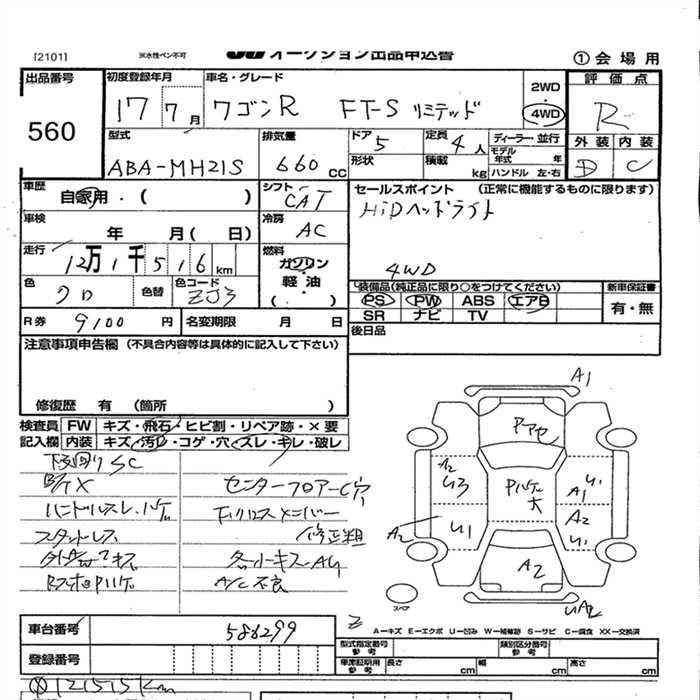 [2101] ※水性ペン不可 オークション出品申込書 ①会場用
出品番号 初度登録年月 車名・グレード 2WD 評価点
560 17 7月 ワゴンR FT-S リミテッド 4WD R
型式 排気量 ドア 5 定員 4人 ディーラー・並行 外装 内装
ABA-MH21S 660 cc 形状 積載 kg モデル年式 年 ハンドル 左・右 D C
車歴 自家用・( ) シフト CAT セールスポイント (正常に機能するものに限ります)
車検 年 月( 日) 冷房 AC HiDヘッドライト
走行 12万1千516km 燃料 ガソリン 軽油( ) 4WD
色 クロ 色替 色コード ZJ3 装備品(純正品に限り○をつけてください) 新車保証書
PS PW ABS エアB 有・無
R券 9100円 名変期限 月 日 SR ナビ TV
注意事項申告欄(不具合内容等は具体的に記入して下さい) 後日品
修復歴 有 (箇所 )
検査員 FW キズ・飛石・ヒビ割・リペア跡・×要
記入欄 内装 キズ・汚レ・コゲ・穴・スレ・キレ・破レ
下廻りSC
センターフロアーC穴
ハンドルスレ
スタットレス 修正粗
A/C不良
A1
A2 U3 U1 A2
A1 A2
A2
UA2
スペア
A-キズ E-エクボ U-凹み W-補修跡 S-サビ C-腐食 XX-交換済
車台番号 586299 型式指定番号 参考 類別区分番号 参考
登録番号 車庫証明用 参考 長さ cm 幅 cm 高さ cm
121515Km